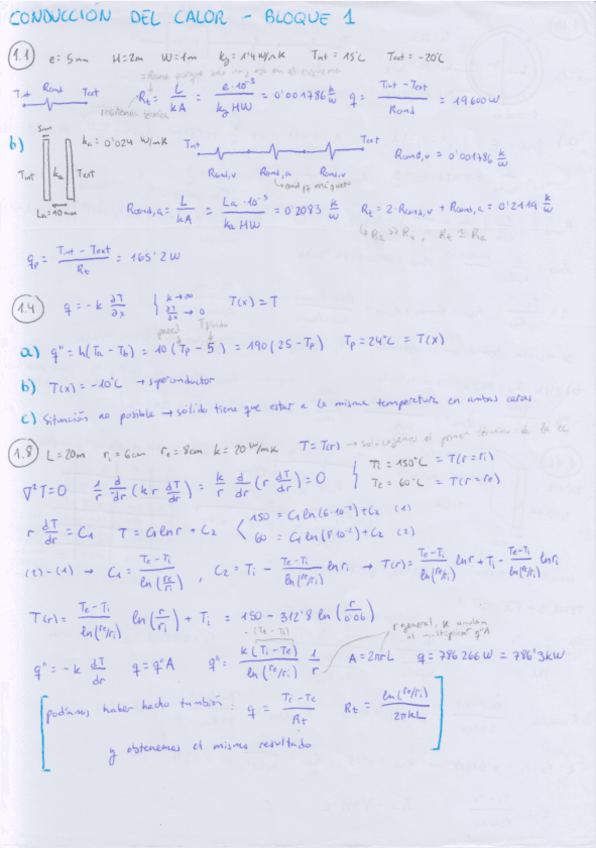 CONDUCCIÓN DEL CALOR - BLOQUE 1
1.1 e = 5 mm H = 2m W = 1m kg = 1'4 W/mK Tint = 15°C Text = -20°C
Tint Rcond Text
Rt = L/kA = e·10⁻³/(kg HW) = 0'001786 K/W q = (Tint - Text)/Rcond = 19600 W
resistencia térmica
b) 5mm ka = 0'024 W/mK Tint Text
Tint ka Text Rcond,v Rcond,a Rcond,v Rcond,v = 0'001786 K/W
La=10mm
Rcond,a = L/kA = La·10⁻³/(ka HW) = 0'2083 K/W Rt = 2·Rcond,v + Rcond,a = 0'2119 K/W
↳ Ra >> Rv, Rt ≅ Ra
qp = (Tint - Text)/Rt = 165'2 W
1.4 q = -k ∂T/∂x { k→∞ ∂T/∂x → 0 T(x) = T
pared
a) q" = h(Ta - Tb) = 10(Tp - 5) = 190(25 - Tp) Tp = 24°C = T(x)
b) T(x) = -10°C → superconductor
c) Situación no posible → sólido tiene que estar a la misma temperatura en ambas caras
1.8 L = 20m ri = 6cm re = 8cm k = 20 W/mK T = T(r) → solo cogemos el primer término de la ec
∇²T = 0 1/r d/dr (kr dT/dr) = k/r d/dr (r dT/dr) = 0 { Ti = 150°C = T(r=ri) Te = 60°C = T(r=re)
r dT/dr = C₁ T = C₁ ln r + C₂ < 150 = C₁ ln(6·10⁻²) + C₂ (1)
60 = C₁ ln(8·10⁻²) + C₂ (2)
(2)-(1) → C₁ = (Te - Ti)/ln(re/ri) , C₂ = Ti - (Te - Ti)/ln(re/ri) ln ri → T(r) = (Te - Ti)/ln(re/ri) ln r + Ti - (Te - Ti)/ln(re/ri) ln ri
T(r) = (Te - Ti)/ln(re/ri) ln(r/ri) + Ti = 150 - 312'8 ln(r/0'06)
r general, se anulan al multiplicar q"A
-(Te - Ti)
q" = -k dT/dr q = q"A q" = k(Ti - Te)/ln(re/ri) 1/r A = 2πrL q = 786266 W = 786'3kW
podíamos haber hecho también: q = (Ti - Te)/Rt Rt = ln(re/ri)/2πkL
y obtenemos el mismo resultado